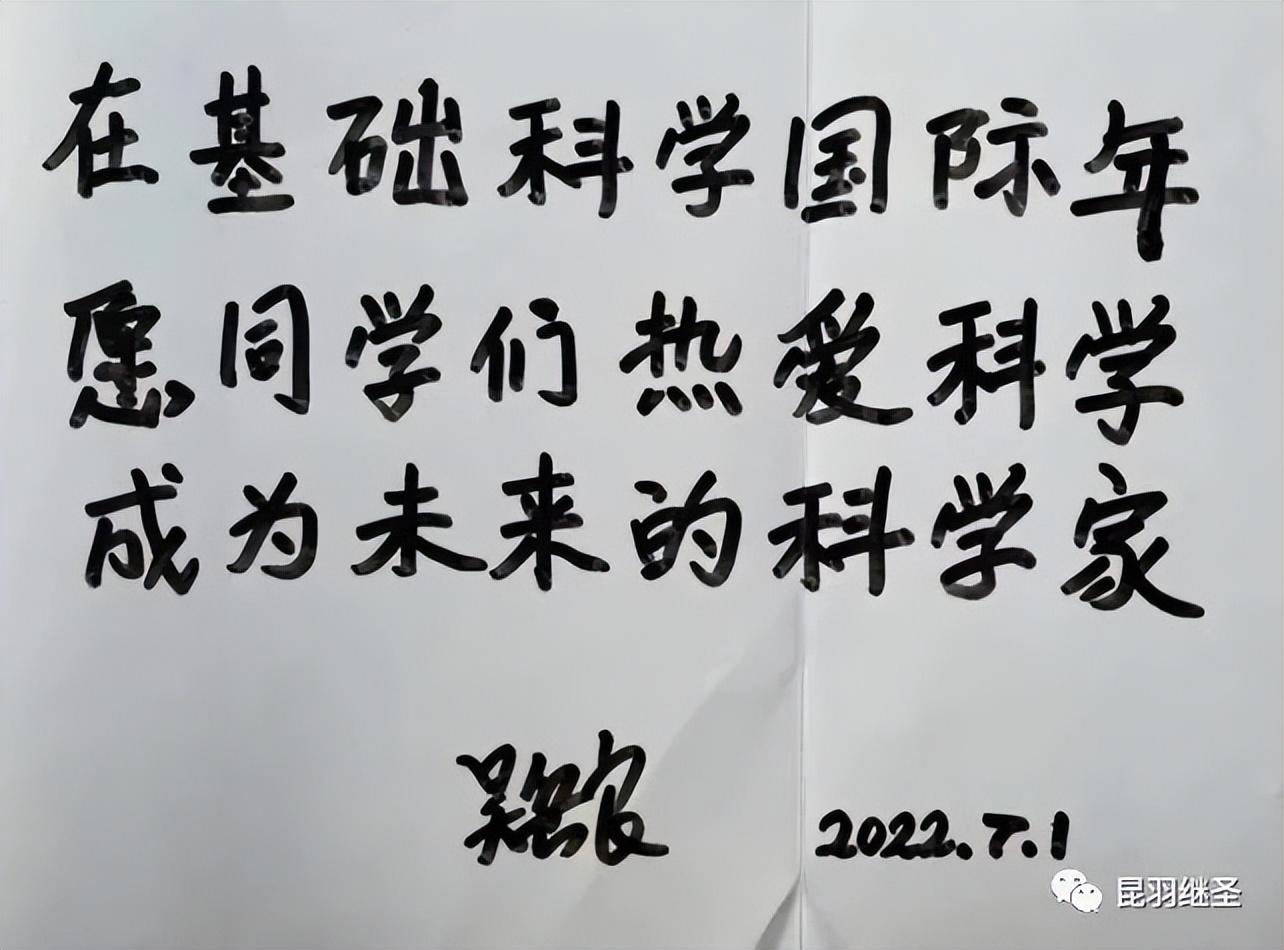 在基础科学国际年
愿同学们热爱科学
成为未来的科学家
2022.7.1
昆羽继圣